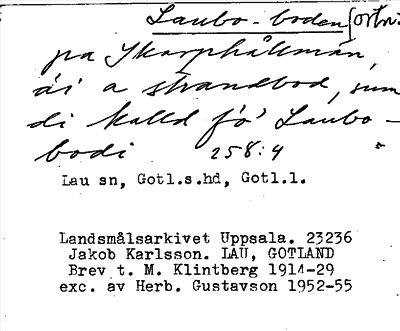 Laubo-boden (ortn
pa Skarphållmän,
äi a strandbod, sum
di kalld fö' Laubo-
bodi 258:4
Lau sn, Gotl.s.hd, Gotl.l.
Landsmålsarkivet Uppsala. 23236
Jakob Karlsson. LAU, GOTLAND
Brev t. M. Klintberg 1914-29
exc. av Herb. Gustavson 1952-55